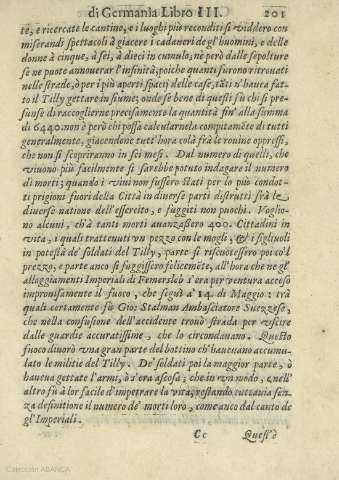 di Germania Libro III. 201
te, e ricercate le cantine, e i luoghi più reconditi si viddero con
miserandi spettacoli à giacere i cadaueri de gl' huomini, e delle
donne à cinque, à sei, à dieci in cumulo, nè però dalle sepolture
se ne puote annouerar l'infinità, poiche quanti furono ritrouati
nelle strade, ò per i più aperti spacij delle case, tãti n' haueua fat-
to il Tilly gettare in fiume; onde se bene di questi fù chi si pre-
sunse di raccoglierne precisamente la quantità fin' alla summa
di 6440. non è però chi possa calcularne la compitamẽte di tutti
generalmente, giacendone tutt' hora colà frà le rouine oppressi,
che non si scopriranno in sei mesi. Dal numero di quelli, che
viuono più facilmente si sarebbe potuto indagare il numero
di morti; quando i viui non fussero stati per lo più condot-
ti prigioni fuori della Città in diuerse parti distrutti frà le
diuerse natione dell' essercito, e fuggiti non puochi. Voglio-
no alcuni, ch' à tanti morti auanzassero 400. Cittadini in
vita, i quali tratteuuti vn pezzo con le mogli, & i figliuoli
in potestà de' soldati del Tilly, parte si riscuotessero poi co'l
prezzo, e parte anco si fuggissero felicemẽte, all' hora che ne gl'
alloggiamenti Imperiali di Femersleb s' era per ventura acceso
improuisamente il fuoco, che seguì a' 14. di Maggio: trà
quali certamente fù Gio: Stalman Ambasciatore Suezzese,
che nella confusione dell' accidente trouò strada per vscire
dalle guardie accuratissime, che lo circondauano. Questo
fuoco diuorò vna gran parte del bottino ch' haueuano accumu-
lato le militie del Tilly. De' soldati poi la maggior parte, ò
haueua gettate l' armi, ò s' era ascosa; che in vn modo, e nell'
altro fù à lor facile d' impetrare la vita, restando tuttauia sen-
za definitione il numero de' morti loro, come anco dal canto de
gl' Imperiali.
Cc Quest'è
Colección ABANCA